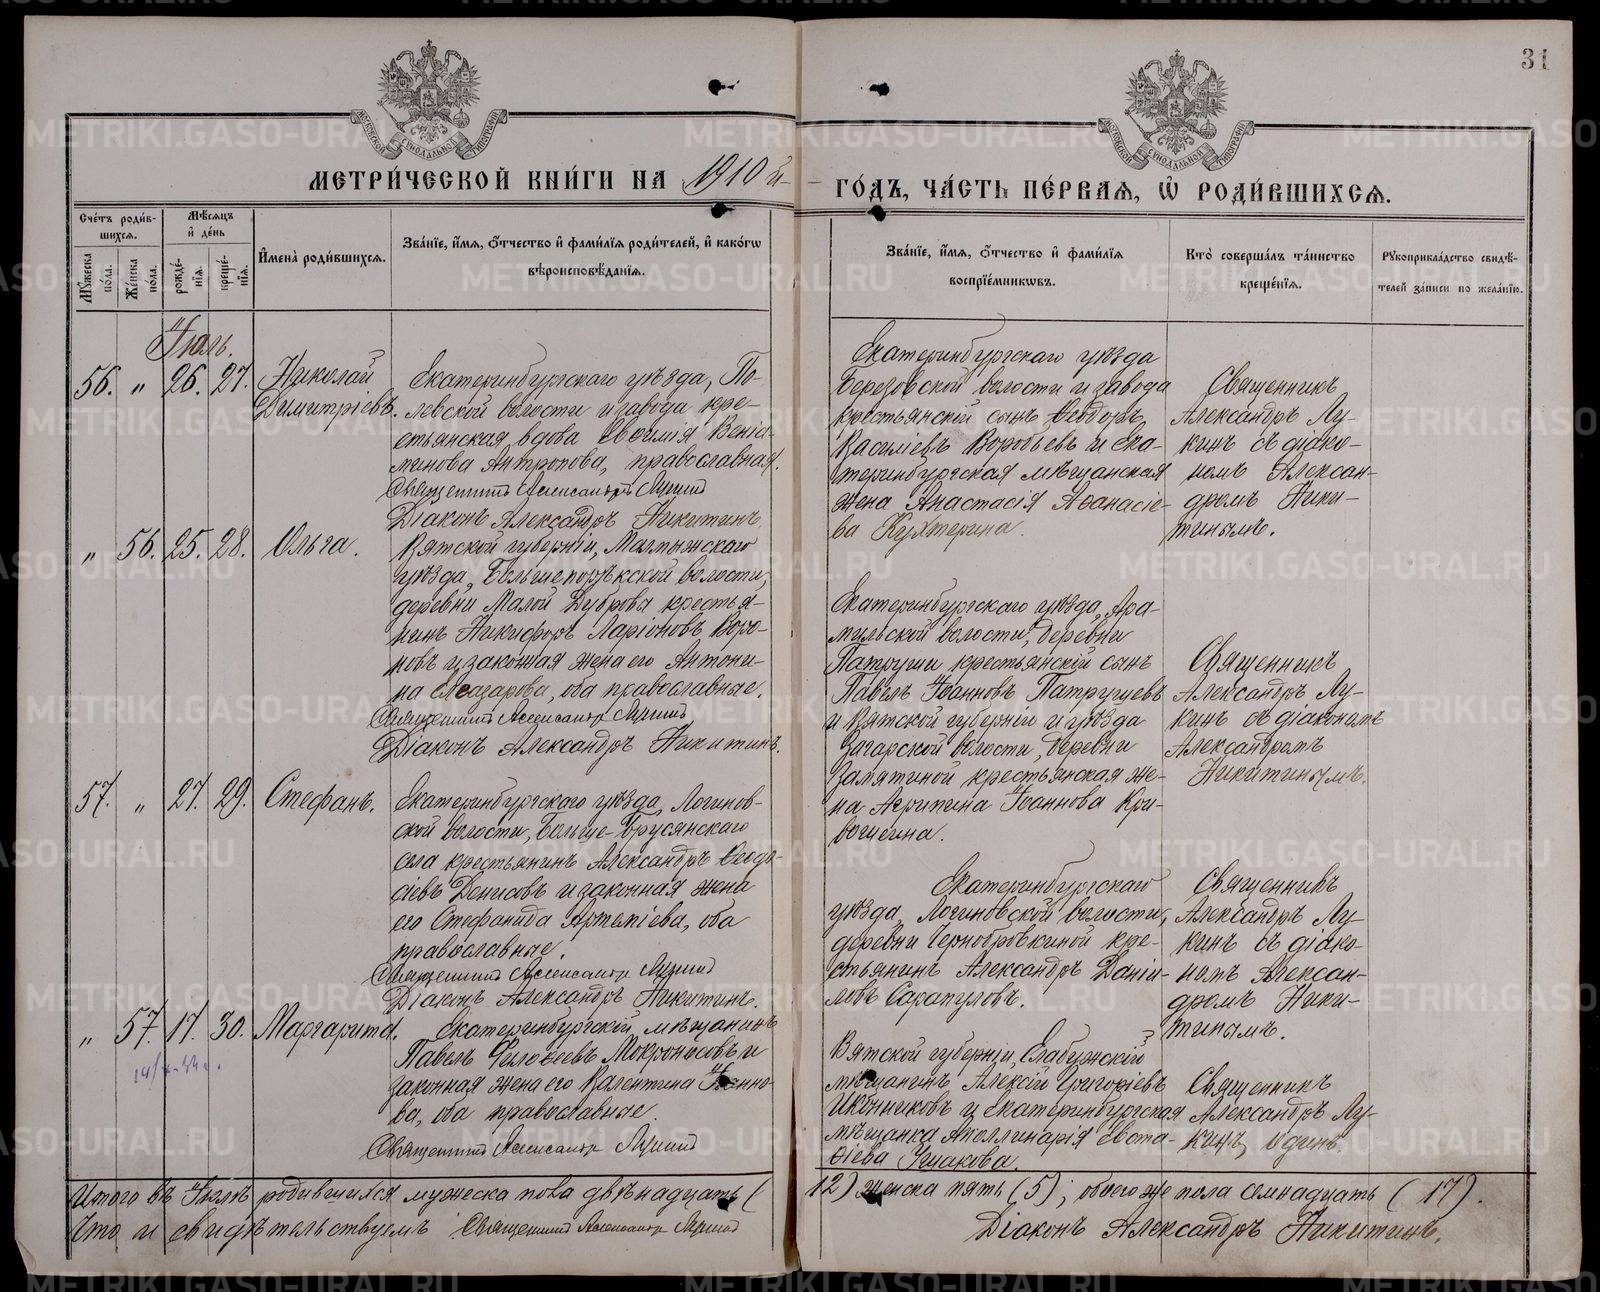 31
МОСКОВСКОЙ СѴНОДАЛЬНОЙ ТИПОГРАФІИ
МОСКОВСКОЙ СѴНОДАЛЬНОЙ ТИПОГРАФІИ
МЕТРИ́ЧЕСКОЙ КНИ́ГИ НА 1910 й
ГО́ДЪ, ЧА́СТЬ ПЕ́РВАѦ, Ѡ҆ РОДИ́ВШИХСѦ.
Сче́тъ роди́вшихсѧ.
Мѣ́сѧцъ и҆ де́нь
Мꙋ́жеска по́ла.
Же́нска по́ла.
рожде́нїѧ.
креще́нїѧ.
И҆мена̀ роди́вшихсѧ.
Зва́нїе, и҆́мѧ, ѻ҆́тчество и҆ фами́лїѧ роди́телей, и҆ како́гѡ
вѣроисповѣ́данїѧ.
Зва́нїе, и҆́мѧ, ѻ҆́тчество и҆ фами́лїѧ
воспрїе́мникѡвъ.
Кто̀ соверша́лъ та́инство
креще́нїѧ.
Рꙋкоприкла́дство свидѣ́-
телей за́писи по жела́нїю.
Іюль.
56. „ 26. 27. Николай
Димитріевъ.
Екатеринбургскаго уѣзда, По-
левской волости и завода кре-
стьянская вдова Евѳимія Веніа-
минова Антропова, православная.
Священникъ Александръ Лукинъ
Діаконъ Александръ Никитинъ.
Екатеринбургскаго уѣзда
Березовской волости и завода
крестьянскій сынъ Ѳеодоръ
Василіевъ Воробьевъ и Ека-
теринбургская мѣщанская
жена Анастасія Аѳанасіе-
ва Кухтерина.
Священникъ
Александръ Лу-
кинъ съ діако-
номъ Алексан-
дромъ Ники-
тинымъ.
„ 56. 25. 28. Ольга.
Вятской губерніи, Малмыжскаго
уѣзда, Большепорѣкской волости,
деревни Малой Дубровы крестья-
нинъ Никифоръ Ларіоновъ Воро-
новъ и законная жена его Антони-
на Елеазарова, оба православные.
Священникъ Александръ Лукинъ
Діаконъ Александръ Никитинъ.
Екатеринбургскаго уѣзда, Ара-
мильской волости, деревни
Патруши крестьянскій сынъ
Павелъ Іоанновъ Патрушевъ
и Вятской губерніи и уѣзда
Загарской волости, деревни
Замятиной крестьянская же-
на Агрипина Іоаннова Кри-
вошеина.
Священникъ
Александръ Лу-
кинъ съ діакономъ
Александромъ
Никитинымъ.
57. „ 27. 29. Стефанъ.
Екатеринбургскаго уѣзда, Логинов-
ской волости, Больше-Брусянскаго
села крестьянинъ Александръ Ѳеодо-
сіевъ Денисовъ и законная жена
его Стефанида Артеміева, оба
православные.
Священникъ Александръ Лукинъ
Діаконъ Александръ Никитинъ.
Екатеринбургскаго
уѣзда, Логиновской волости,
деревни Чернобровкиной кре-
стьянинъ Александръ Даніи-
ловъ Сарапуловъ.
Священникъ
Александръ Лу-
кинъ съ діако-
номъ Алексан-
дромъ Ники-
тинымъ.
„ 57. 17. 30. Маргарита.
Екатеринбургскій мѣщанинъ
Павелъ Филоѳеевъ Мокроносовъ и
законная жена его Валентина Іоанно-
ва, оба православные.
Священникъ Александръ Лукинъ
Вятской губерніи, Елабужскій
мѣщанинъ Алексій Григоріевъ
Иконниковъ и Екатеринбургская
мѣщанка Аполлинарія Евста-
ѳіева Ушакова.
Священникъ
Александръ Лу-
кинъ, одинъ.
Итого въ Іюлѣ родившихся мужеска пола двѣнадцать (
12) женска пять (5); обоего же пола семнадцать (17).
Что и свидѣтельствуемъ Священникъ Александръ Лукинъ
Діаконъ Александръ Никитинъ.
METRIKI.GASO-URAL.RU